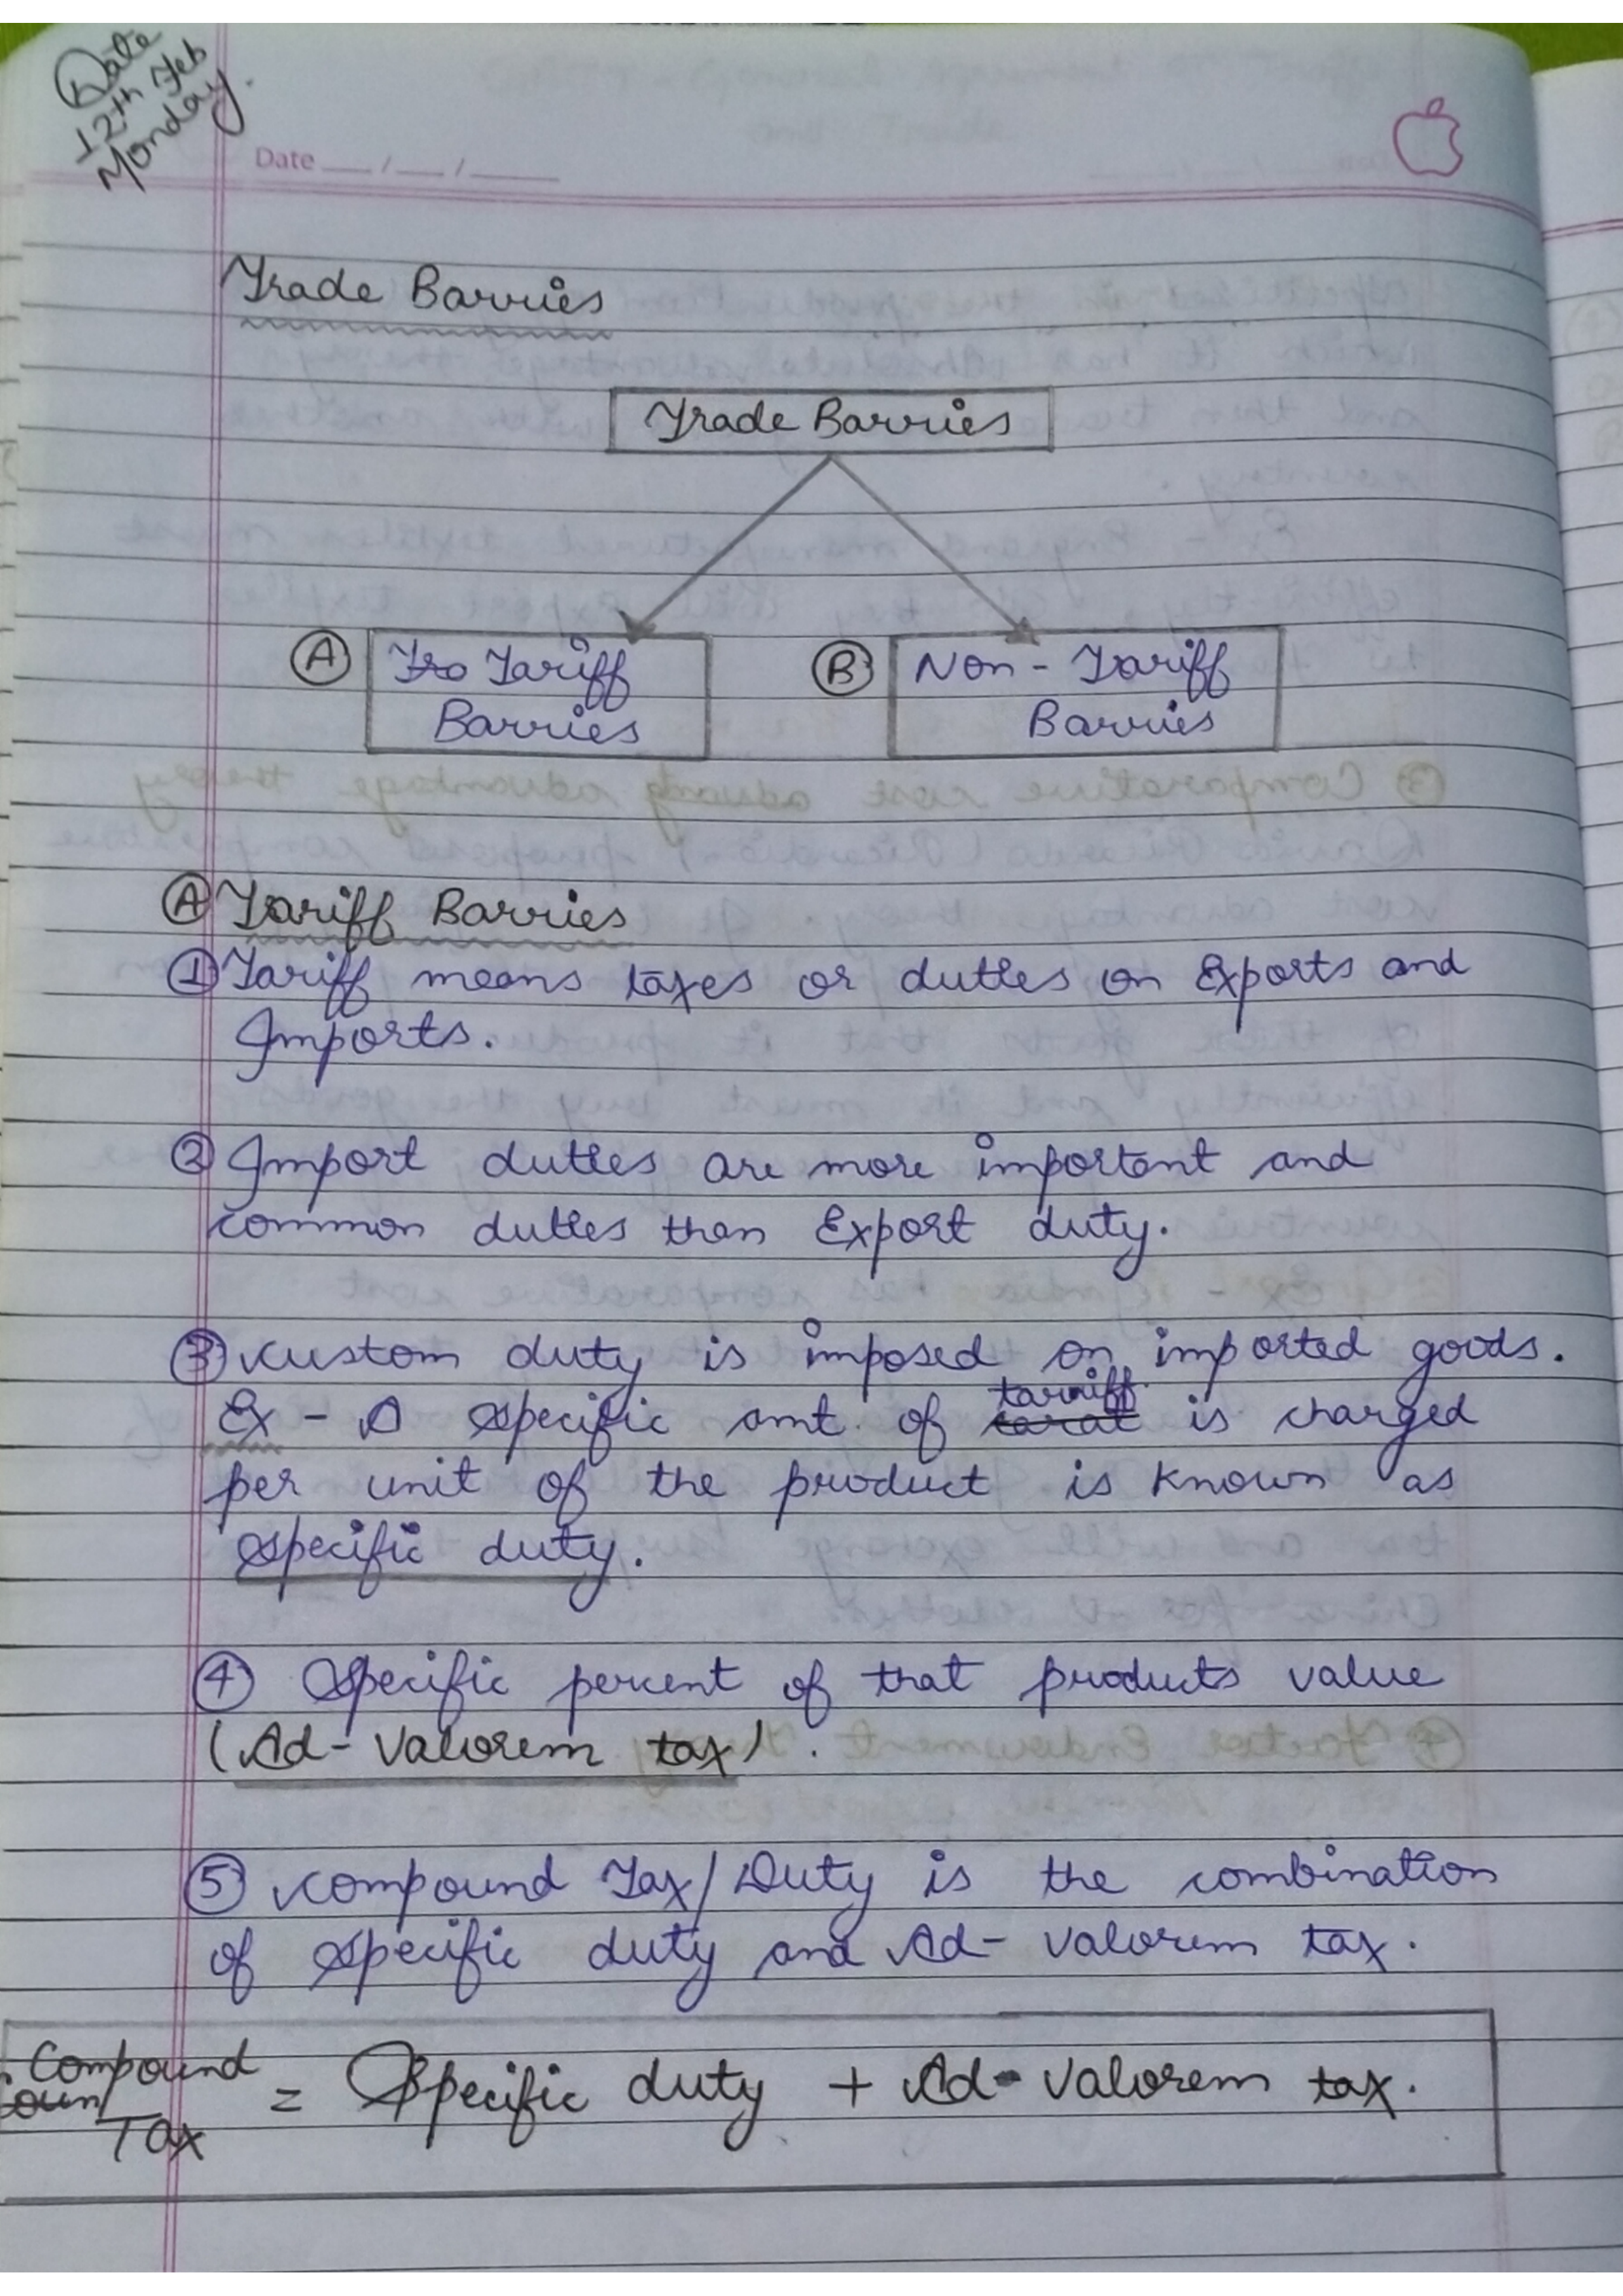 Date
12th Feb
Monday.
Date __/__/____
Trade Barries
Trade Barries
A Tra Tariff
Barries
B Non-Tariff
Barries
A Tariff Barries
1 Tariff means taxes or duties on Exports and
Imports.
2 Import duties are more important and
common duties than Export duty.
3 Custom duty is imposed on imported goods.
tarriff
Ex - A specific amt. of tarat is charged
per unit of the product is known as
specific duty.
4 Specific percent of that products value
(Ad-Valorem tax).
5 Compound Tax/Duty is the combination
of specific duty and Ad-Valorem tax.
Compound
Tax = Specific duty + Ad-Valorem tax.